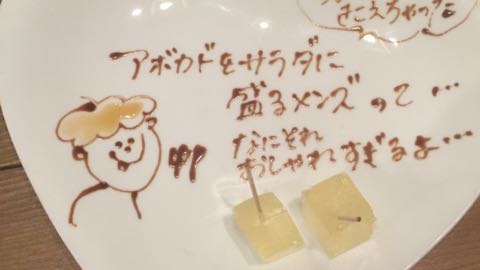 きこえちゃった
アボカドをサラダに
盛るメンズって…
なにそれ
おしゃれすぎるよ…